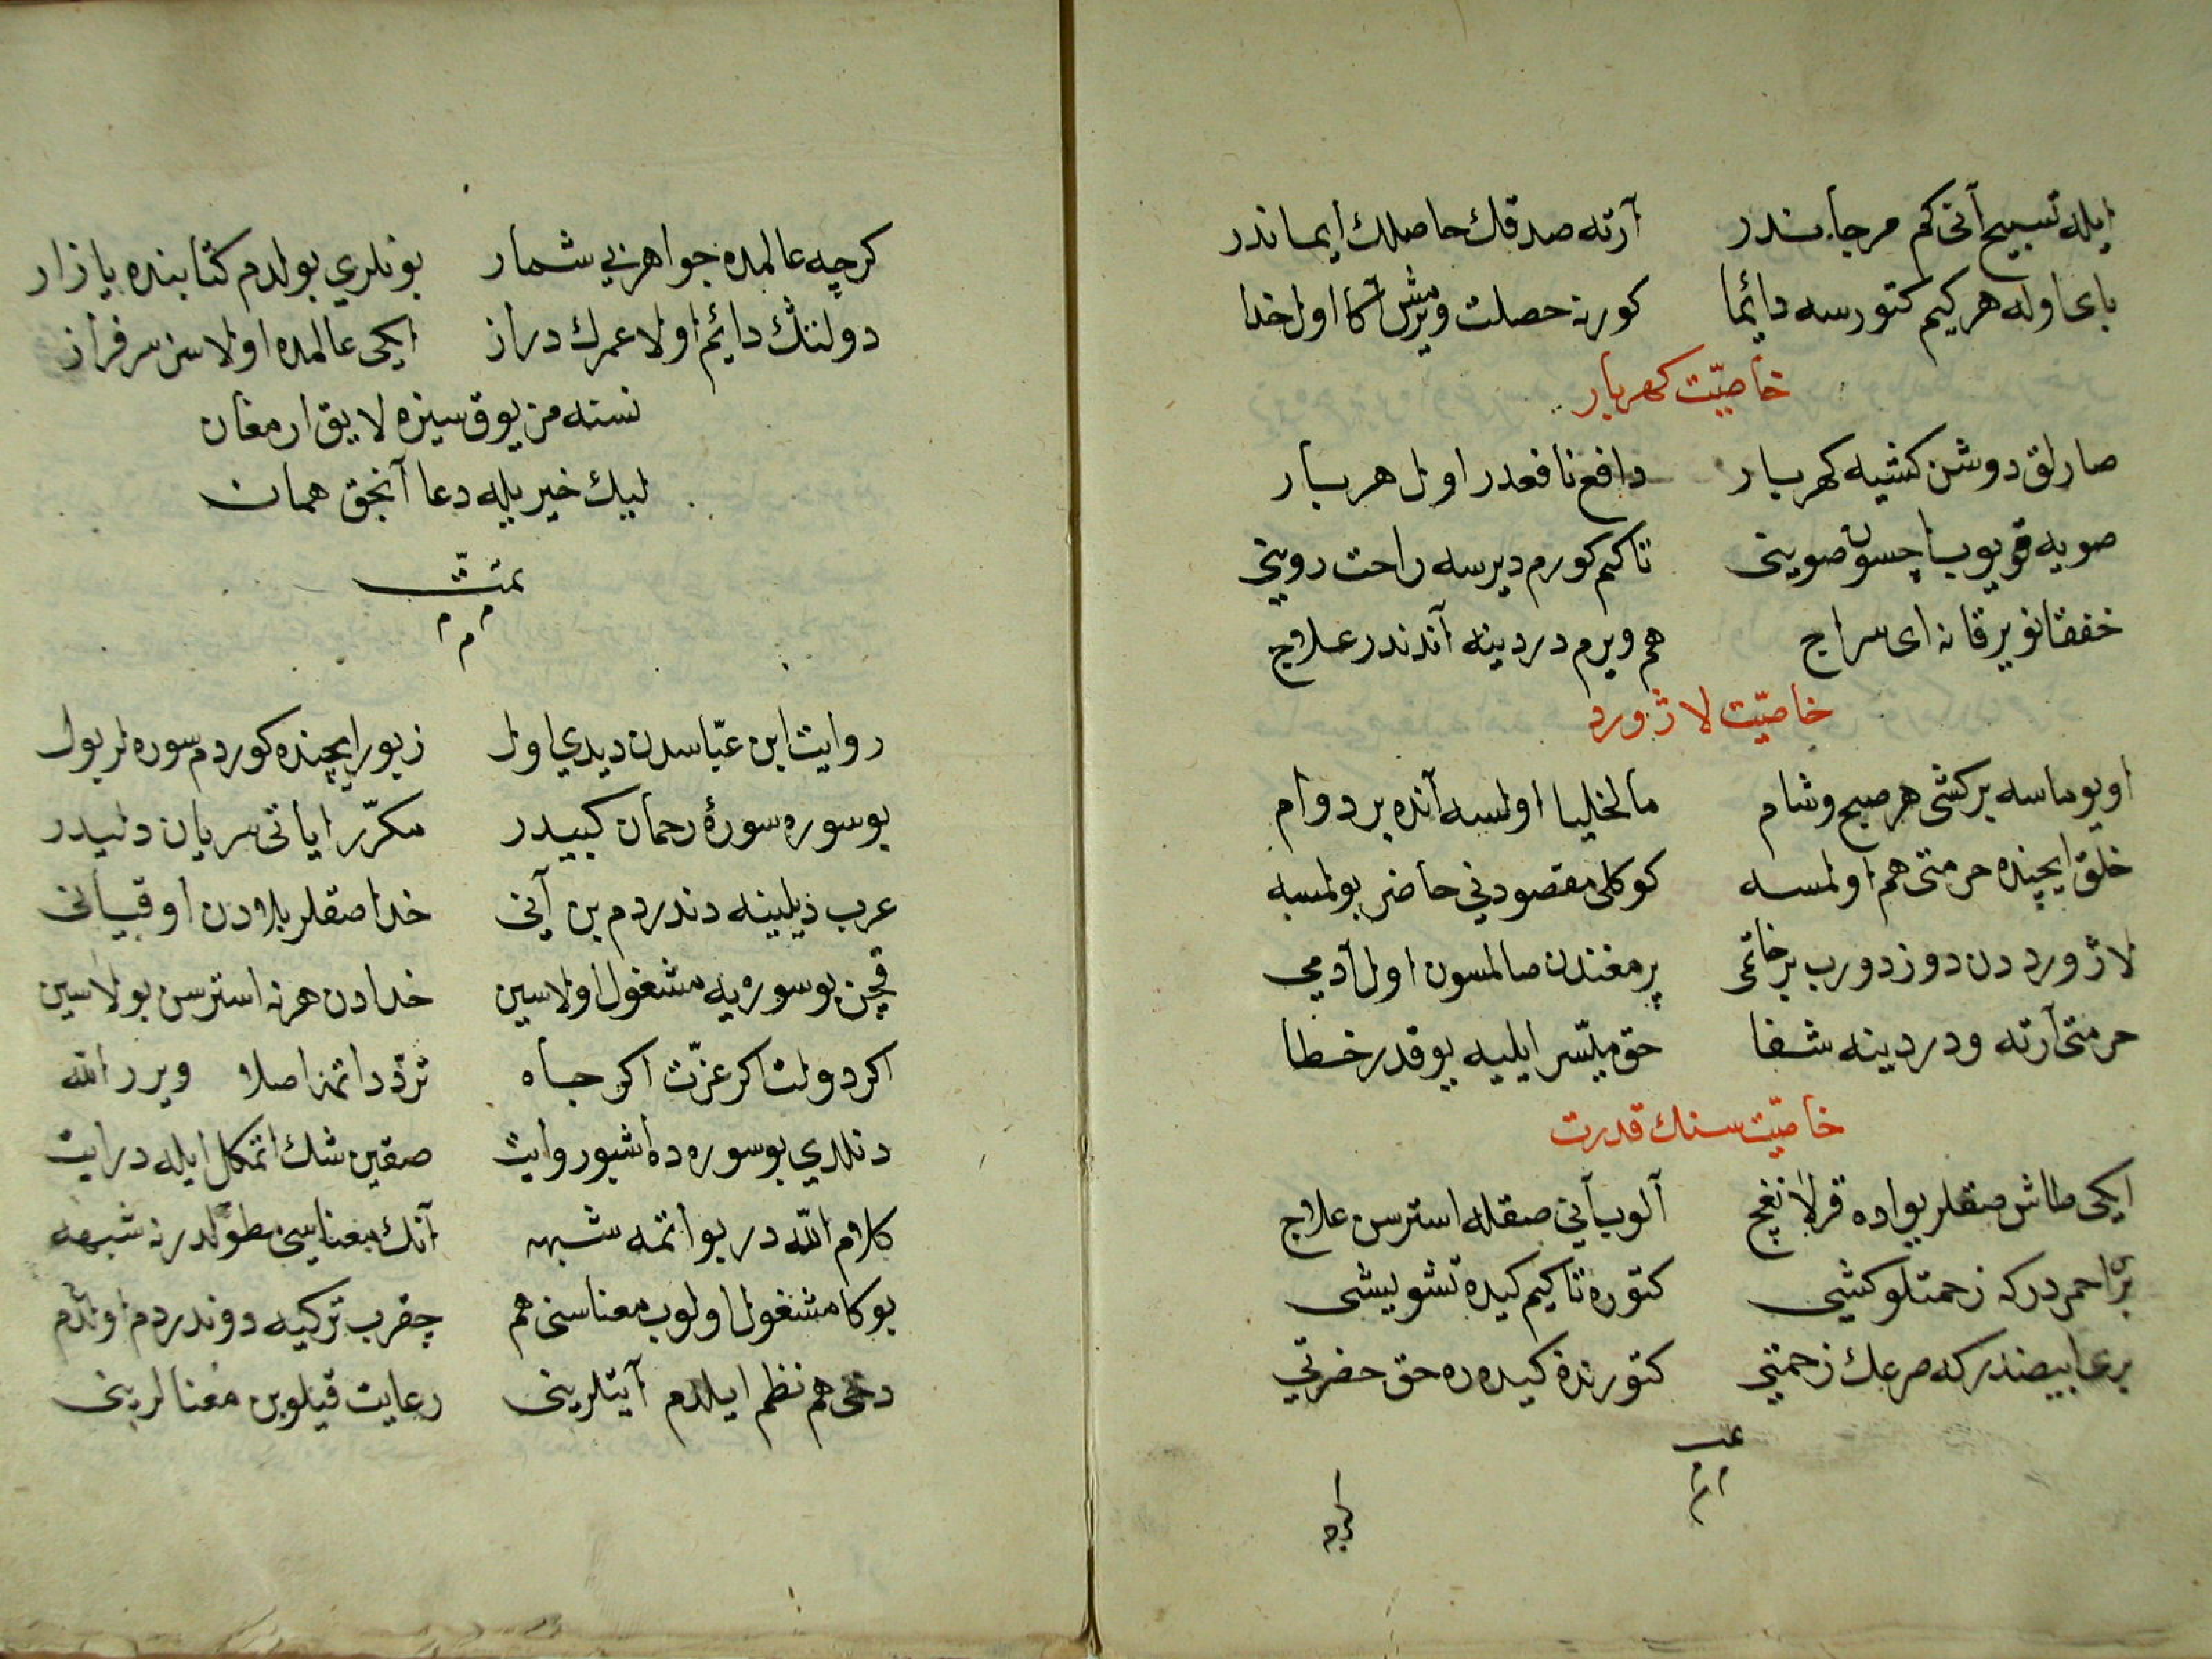 ايله تسبيح آنى كم مرجاندر آرته صدقك حاصلك ايماندر
باى اوله هر كيم كتورسه دائما كور نه حصلت ويرمش آكا اول خدا
خاصيّت كهربار
صارلق دوشن كشيه كهربار دافع نافعدر اول هر بار
صويه قويوب ايچسون صوينى تا كم كورم ديرسه راحت روينى
خفقانو يرقانه اى سراج هم ويرم دردينه آندندر علاج
خاصيّت لاژورد
اويوماسه بر كشى هر صبح وشام مالخليا اولسه آنده بر دوام
خلق ايچنده حرمتى هم اولمسه كوكلى مقصودنى حاضر بولمسه
لاژورددن دوزدورب بر خاتمى پرمغندن صالمسون اول آدمى
حرمتى آرته ودردينه شفا حق ميسّر ايليه يوقدر خطا
خاصيّت سنك قدرت
ايكى طاش صقلر يواده قرلانغچ آلوب آنى صقله استرسن علاج
برّ احمردر كه زحمتلو كشى كتوره تا كيم كيده تشويشى
برى ابيضدر كه صرعك زحمتى كتورنده كيده ره حق حضرتى
تمت
م م م
كرچه
كرچه عالمده جواهر بى شمار بونلرى بولدم كتابنده يازار
دولتنك دائم اولا عمرك دراز ايكى عالمده اولاسن سرفراز
نسنه مز يوق سيزه لايق ارمغان
ليك خير يله دعا آنجق همان
تمّت
م م م
روايت ابن عبّاسدن ديدى اول زبور ايچنده كوردم سوره لر بول
بو سوره سورۀ رحمان كبيدر مكرّر اياتى سريان دليدر
عرب ذيلينه دندردم بن آنى خدا صقلر بلادن اوقيانى
قچن بو سوره يه مشغول اولاسين خدادن هر نه استرسن بولاسين
اكر دولت اكر عزّت اكر جاه تردّد اتمه اصلا ويرر الله
دنلدى بو سوره ده اشبو روايت صقين شك اتمكل ايله درايت
كلام الله در بو اتمه شبهه آنك معناسى مطوّلدر نه شبهه
بوكا مشغول اولوب معناسنى هم چقرب تركيه دوندردم اول دم
دخى هم نظم ايلدم آيتلرينى رعايت قيلوبن معنالرينى